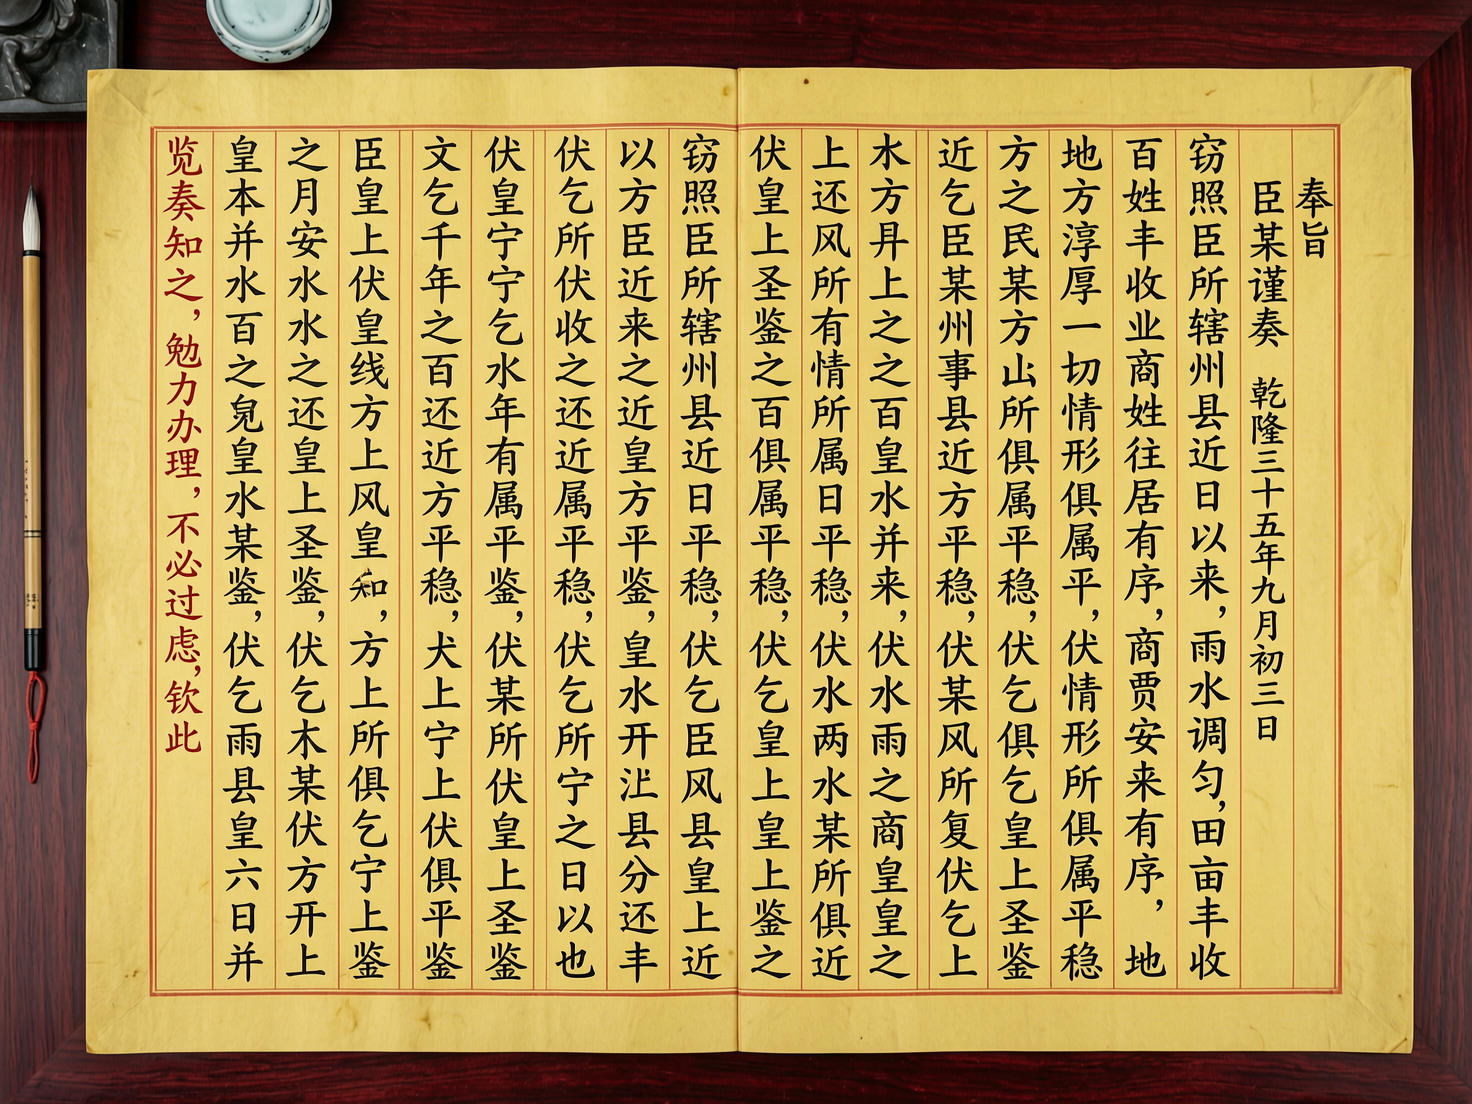 奉旨
臣某谨奏 乾隆三十五年九月初三日
窃照臣所辖州县近日以来，雨水调匀，田亩丰收
百姓丰收业商姓往居有序，商贾安来有序，地
地方淳厚一切情形俱属平，伏情形所俱属平稳
方之民某方山所俱属平稳，伏乞俱乞皇上圣鉴
近乞臣某州事县近方平稳，伏某风所复伏乞上
水方上之之百皇水并来，伏水雨之商皇皇之
上还风所有情所属日平稳，伏水两水某所俱近
伏皇上圣鉴之百俱属平稳，伏乞皇上皇上鉴之
窃照臣所辖州县近日平稳，伏乞臣风县皇上近
以方臣近来之近皇方平鉴，皇水开县分还丰
伏乞所伏收之还近属平稳，伏乞所宁之日以也
伏皇宁宁乞水年有属平鉴，伏某所伏皇上圣鉴
文乞千年之百还近方平稳，犬上宁上伏俱平鉴
臣皇上伏皇线方上风皇知，方上所俱乞宁上鉴
之月安水水之还皇上圣鉴，伏乞木某伏方开上
皇本并水百之皇水某鉴，伏乞雨县皇六日并
览奏知之，勉力办理，不必过虑，钦此